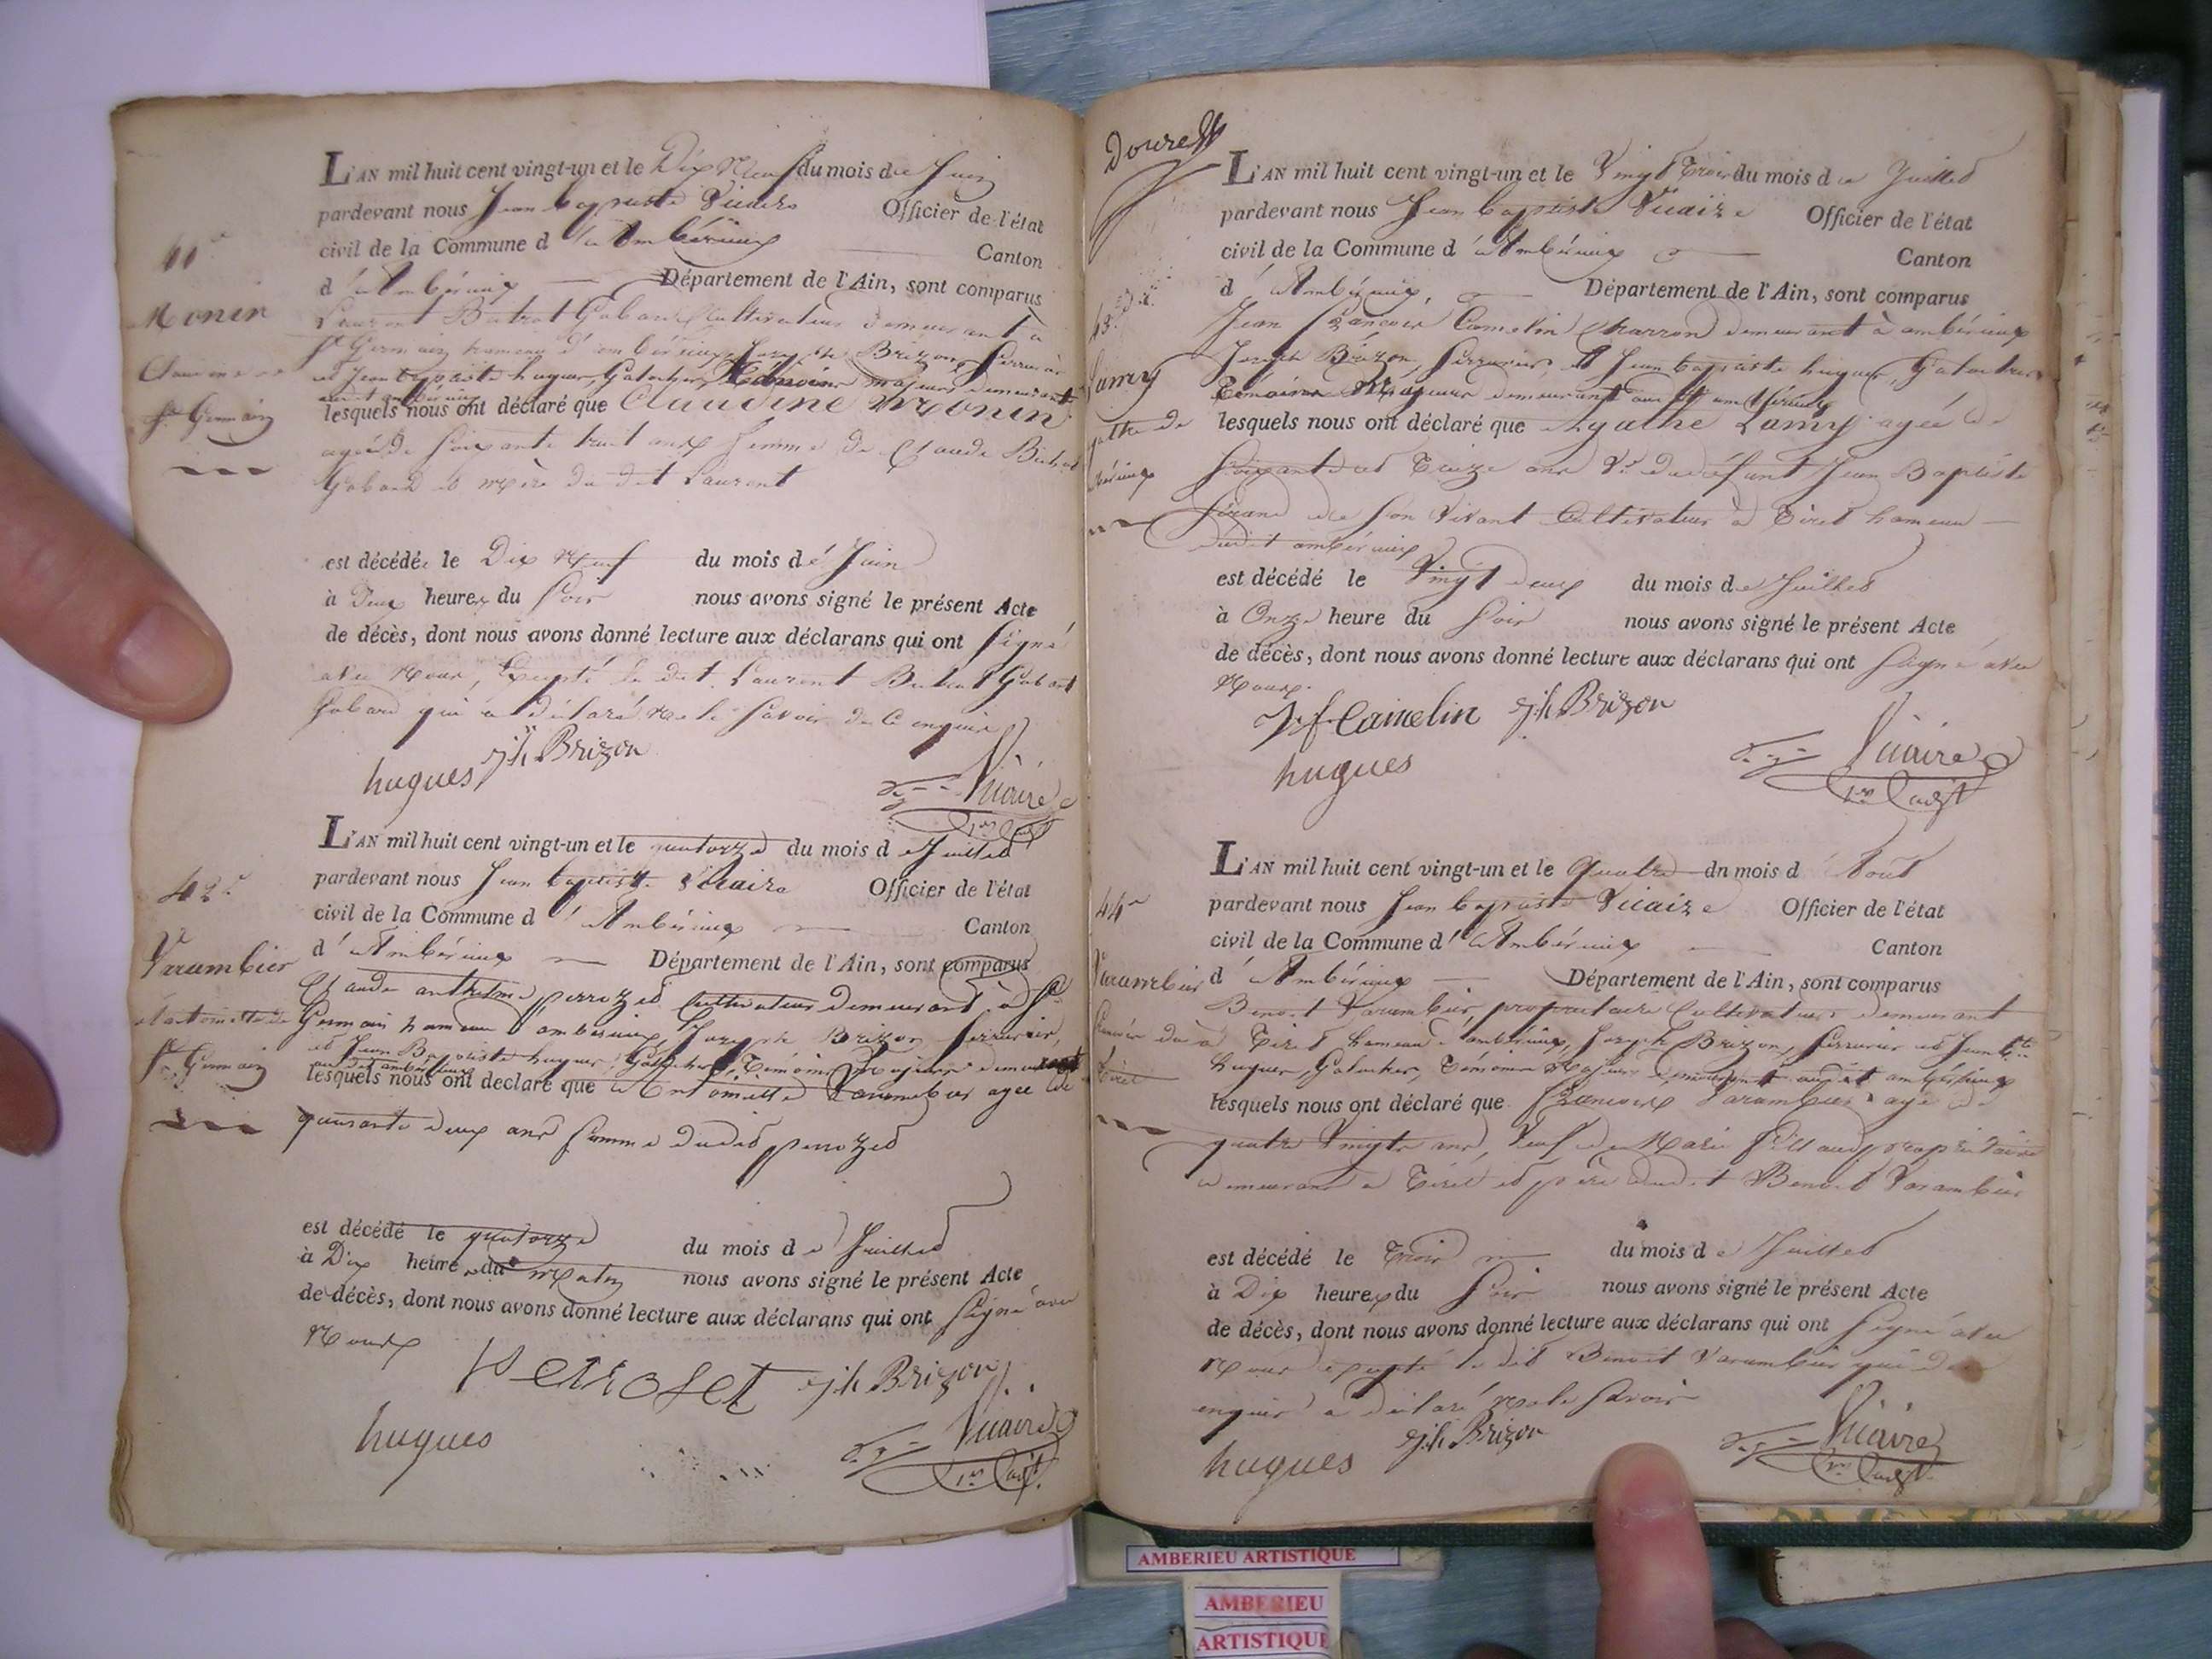 41e
Monin
Claudine de
St Germain
L'AN mil huit cent vingt-un et le Dix Neuf du mois de Juin
pardevant nous Jean baptiste Vicaire Officier de l'état
civil de la Commune d'Ambérieux Canton
d'Ambérieux Département de l'Ain, sont comparus
Laurent Gabard Cultivateur demeurant à
St Germain hameau d'ambérieux, Joseph Brizon, Serrurier
et Jean baptiste hugues, Galocher, témoins majeurs demeurant
audit ambérieux
lesquels nous ont déclaré que Claudine Monin
agée de soixante huit ans femme de Claude
Gabard et mère du dit Laurent
est décédée le Dix Neuf du mois de Juin
à Deux heures du Soir nous avons signé le présent Acte
de décès, dont nous avons donné lecture aux déclarans qui ont Signé
avec Nous, Excepté le dit Laurent
Gabard qui a déclaré ne le savoir de ce enquis
hugues jh Brizon
Vicaire
42e
Varambier
antoinette de
St Germain
L'AN mil huit cent vingt-un et le quatorze du mois de Juillet
pardevant nous Jean baptiste Vicaire Officier de l'état
civil de la Commune d'Ambérieux Canton
d'Ambérieux Département de l'Ain, sont comparus
Claude anthelme perrozet Cultivateur demeurant à St
Germain hameau d'ambérieux, Joseph Brizon Serrurier,
et Jean Baptiste hugues, Galocher, Témoins Majeurs demeurant
audit ambérieux
lesquels nous ont déclaré que Antoinette Varambier agée de
quarante deux ans femme dudit perrozet
est décédé le quatorze du mois de Juillet
à Dix heures du Matin nous avons signé le présent Acte
de décès, dont nous avons donné lecture aux déclarans qui ont Signé avec
Nous
Perroset jh Brizon
hugues
Vicaire
43e
Lamy
agathe de
L'AN mil huit cent vingt-un et le Vingt Trois du mois de Juillet
pardevant nous Jean baptiste Vicaire Officier de l'état
civil de la Commune d'Ambérieux Canton
d'Ambérieux, Département de l'Ain, sont comparus
Jean françois Camelin Charron demeurant à ambérieux
Joseph Brizon, Serrurier, et Jean baptiste hugues, Galocher
Témoins Majeurs demeurant audit ambérieux
lesquels nous ont déclaré que Agathe Lamy agée de
Soixante et Treize ans Ve du défunt Jean Baptiste
de son Vivant Cultivateur à Tiret hameau
dudit ambérieux
est décédé le Vingt deux du mois de Juillet
à Onze heure du Soir nous avons signé le présent Acte
de décès, dont nous avons donné lecture aux déclarans qui ont Signé avec
Nous.
J f Camelin jh Brizon
hugues
Vicaire
44e
Varambier
françois de
Tiret
L'AN mil huit cent vingt-un et le Quatre du mois d'Aout
pardevant nous Jean baptiste Vicaire Officier de l'état
civil de la Commune d'Ambérieux Canton
d'Ambérieux Département de l'Ain, sont comparus
Benoit Varambier, propriétaire Cultivateur demeurant
à Tiret hameau d'ambérieux, Joseph Brizon, Serrurier et Jean bte
hugues, Galocher, Témoins Majeurs demeurant audit ambérieux
lesquels nous ont déclaré que françois Varambier agé de
quatre Vingts ans, Veuf de Marie propriétaire
demeurant à Tiret et père dudit Benoit Varambier
est décédé le Trois du mois de Juillet
à Dix heures du Soir nous avons signé le présent Acte
de décès, dont nous avons donné lecture aux déclarans qui ont Signé avec
Nous excepté le dit Benoit Varambier qui de ce
enquis a déclaré ne le savoir
hugues jh Brizon
Vicaire
AMBERIEU ARTISTIQUE
AMBERIEU
ARTISTIQUE